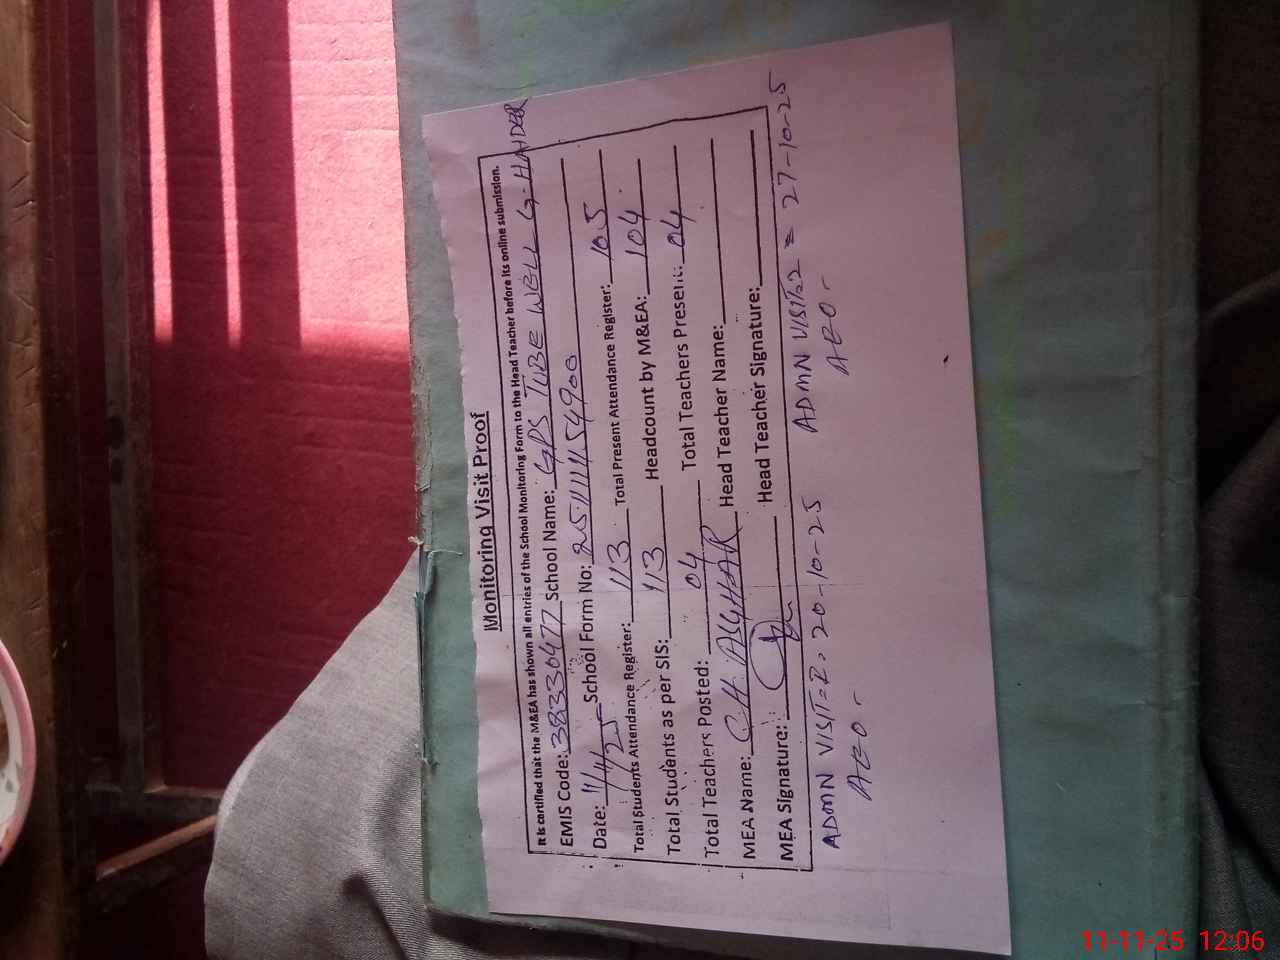 Monitoring Visit Proof
It is certified that the M&EA has shown all entries of the School Monitoring Form to the Head Teacher before its online submission.
EMIS Code: 38330477 School Name: GPS TUBE WELL G-HAIDER
Date: 11/11/25 School Form No: 251111154900
Total Students Attendance Register: 113 Total Present Attendance Register: 105
Total Students as per SIS: 113 Headcount by M&EA: 104
Total Teachers Posted: 04 Total Teachers Present: 04
MEA Name: CH ASGHAR Head Teacher Name:
MEA Signature: Head Teacher Signature:
ADMN VISIT=1. 20-10-25 ADMN VISIT=2 = 27-10-25
AEO- AEO-
11-11-25 12:06